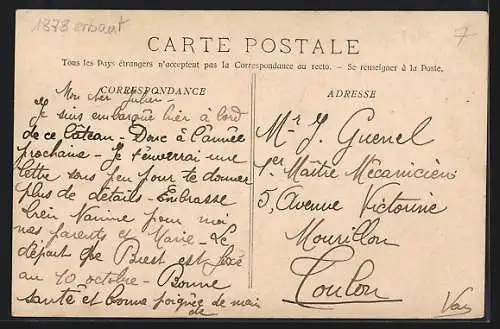 1878 erbant
7
CARTE POSTALE
Tous les Pays étrangers n'acceptent pas la Correspondance au recto. - Se renseigner à la Poste.
CORRESPONDANCE
Mon cher Julien -
Je suis embarqué hier à bord
de ce bateau - Donc à l'année
prochaine - Je t'enverrai une
lettre sous peu pour te donner
plus de détails - Embrasse
bien Nanine pour moi
nos parents et Marie - Le
départ de Brest est fixé
au 10 octobre - Bonne
santé et bonne poignée de main
de
ADRESSE
Mr J. Guenel
1er Maître Mécanicien
5, Avenue Victorine
Mourillon
Toulon
Var